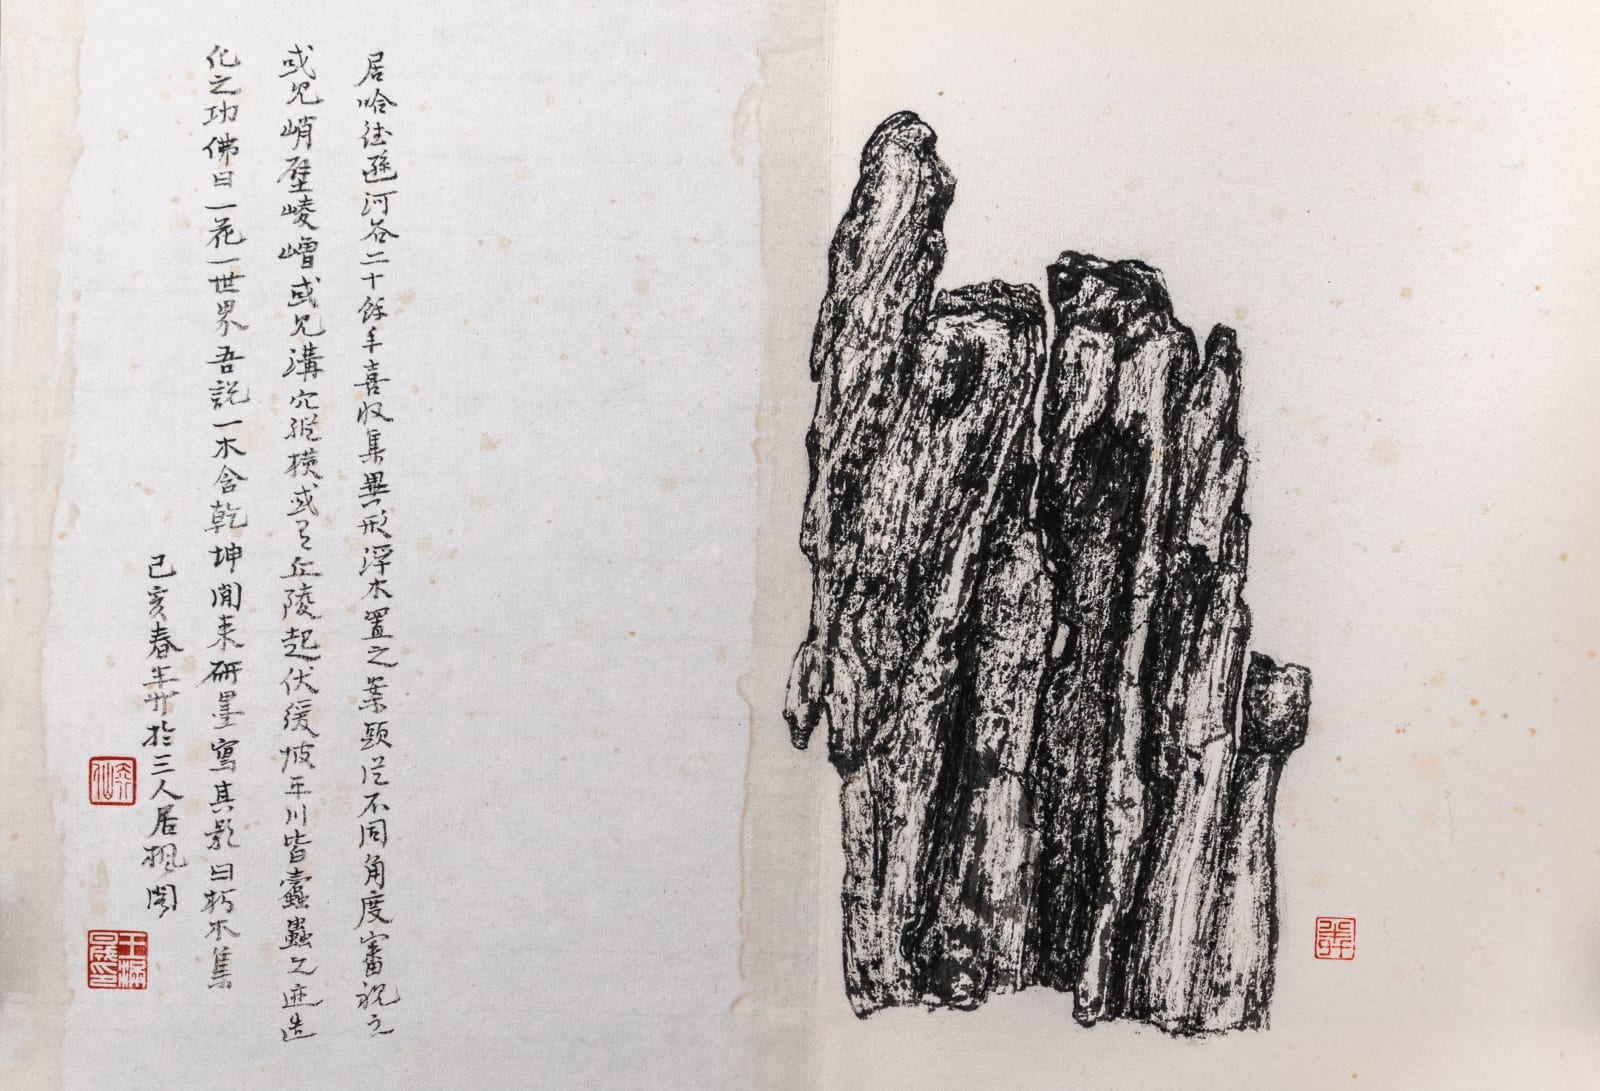 居哈德遜河谷二十餘年喜收集異形浮木置之案頭從不同角度審視之
或見峭壁崚嶒或見溝穴縱橫或見丘陵起伏緩坡平川皆蠹蟲之迹造
化之功佛曰一花一世界吾說一木含乾坤閒來研墨寫其影曰朽木集
己亥春 於三人居楓閣